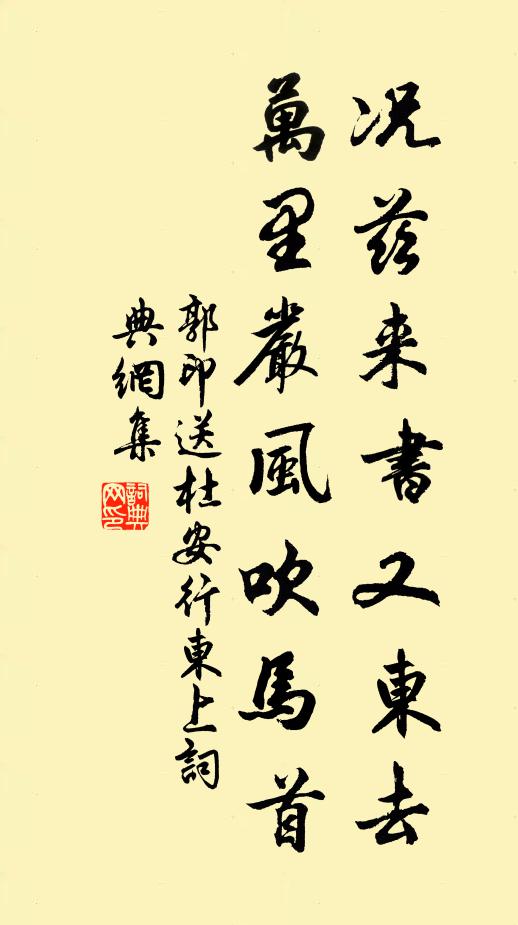 况茲来書又東去
萬里嚴風吹馬首
郭印送杜安行東上詞
典網集
詞典
网印